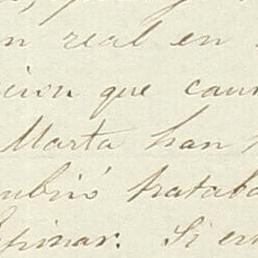 n real en
cion que cau
Marta han
mbrió trataba
Espinar. Si en